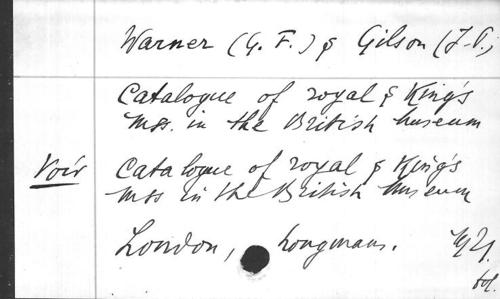 Warner (G. F.) & Gilson (J. P.)
Catalogue of royal & King's
mss. in the British Museum
Voir Catalogue of royal & King's
mss in the British Museum
London, Longmans. 1921.